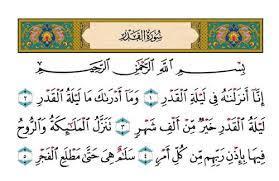 سُورَةُ الْقَدْرِ
بِسْمِ اللَّهِ الرَّحْمَٰنِ الرَّحِيمِ
إِنَّا أَنزَلْنَاهُ فِي لَيْلَةِ الْقَدْرِ ۝١ وَمَا أَدْرَاكَ مَا لَيْلَةُ الْقَدْرِ ۝٢
لَيْلَةُ الْقَدْرِ خَيْرٌ مِّنْ أَلْفِ شَهْرٍ ۝٣ تَنَزَّلُ الْمَلَائِكَةُ وَالرُّوحُ
فِيهَا بِإِذْنِ رَبِّهِم مِّن كُلِّ أَمْرٍ ۝٤ سَلَامٌ هِيَ حَتَّىٰ مَطْلَعِ الْفَجْرِ ۝٥